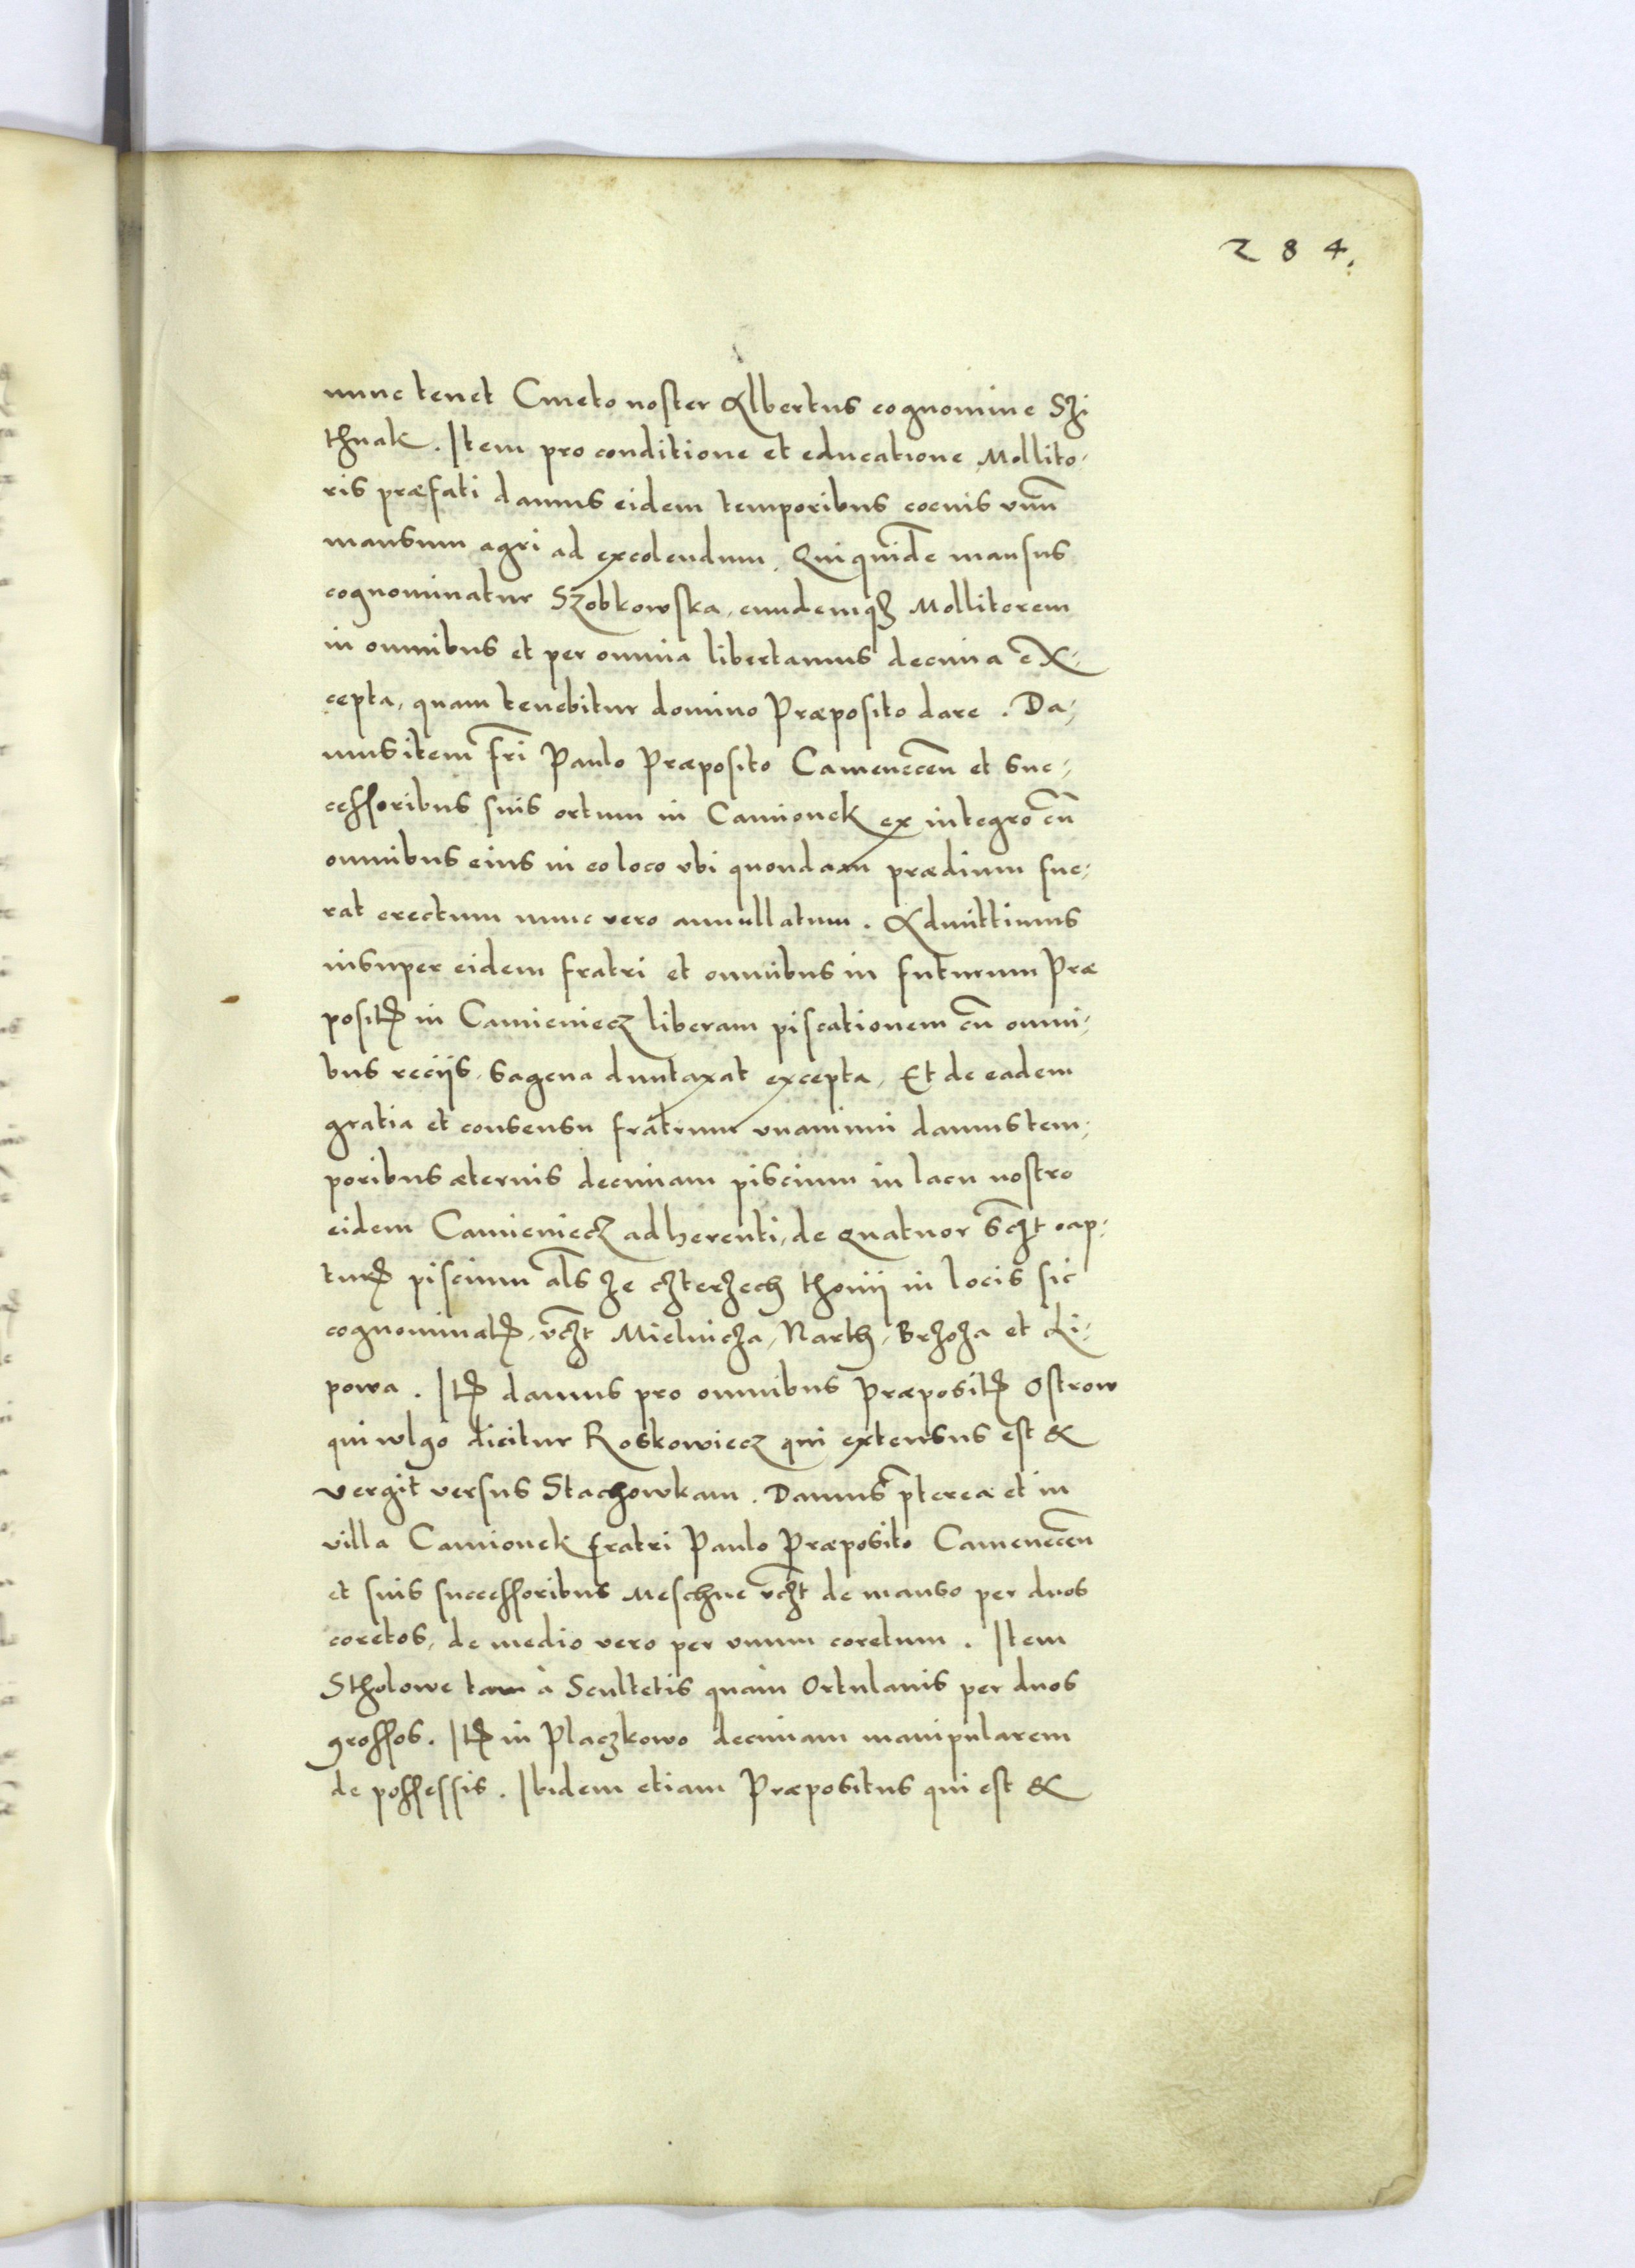 284.
nunc tenet Cmeto noster Albertus cognomine Szi
thnak. Item pro conditione et educatione Mollito-
ris præfati damus eidem temporibus coevis unũ
mansum agri ad excolendum. Qui quidẽ mansus
cognominatur Szobkowska, eundemqꝫ Mollitorem
in omnibus et per omnia libertamus decima ex-
cepta, quam tenebitur domino Præposito dare. Da-
mus item fr̃i Paulo Præposito Camenecen̄ et suc-
cessoribus suis ortum in Camionek ex integro cũ
omnibus eius in eo loco ubi quondam prædium fue-
rat erectum nunc vero annullatum. Admittimus
insuper eidem fratri et omnibus in futurum Præ
positꝭ in Camieniecz liberam piscationem cũ omni-
bus reciis, sagena duntaxat excepta, Et de eadem
gratia et consensu fratrum unanimi damus tem-
poribus æternis decimam piscium in lacu nostro
eidem Camieniecz adherenti, de quatuor sczt cap-
turꝭ piscium als ze czterzech thonii in locis sic
cognominatꝭ, vczt Mielnicza, Narth, Brzoza et Li-
powa. Itꝭ damus pro omnibus Præpositꝭ Ostrow
qui wlgo dicitur Roskowiecz qui extensus est &
vergit versus Stachowkam. Damus p̃terea et in
villa Camionek fratri Paulo Præposito Camenecen̄
et suis successoribus Meschne vczt de manso per duos
coretos, de medio vero per unum coretum. Item
Stholowe tam à Scultetis quam Ortulanis per duos
grossos. Itꝭ in Placzkowo decimam manipularem
de possessis. Ibidem etiam Præpositus qui est &